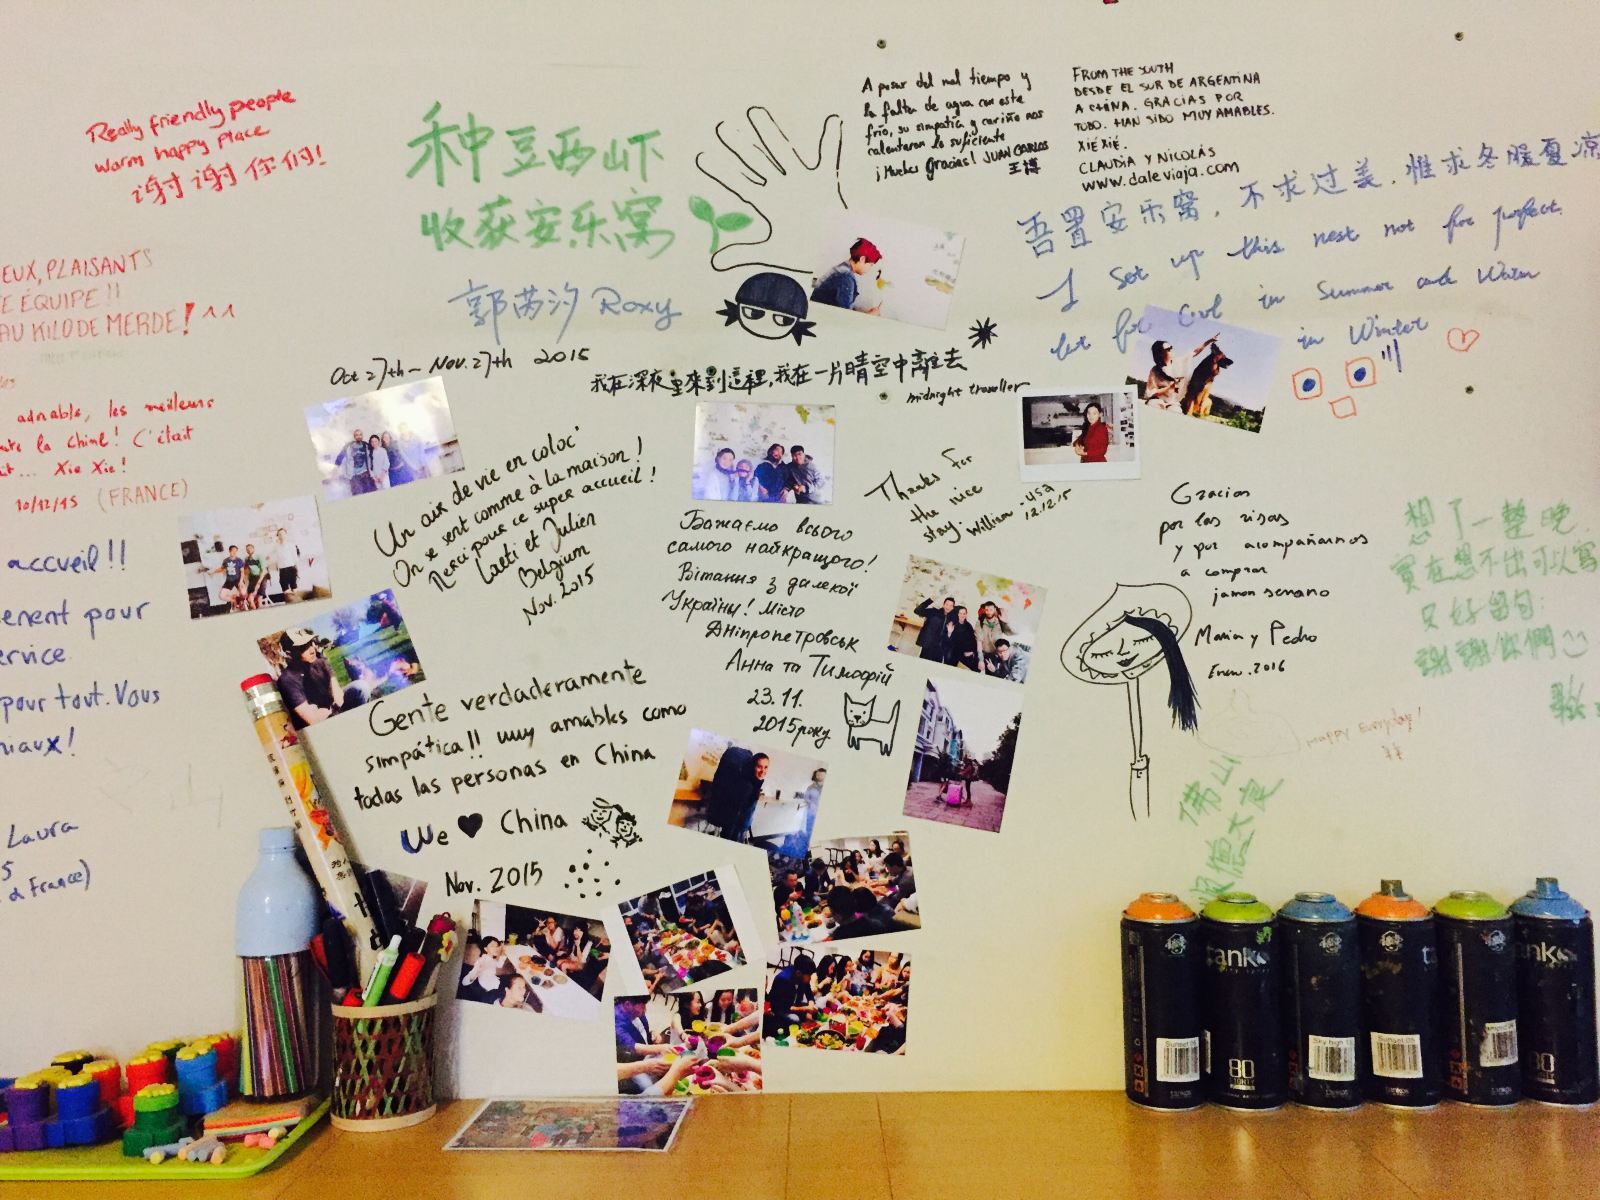 Really friendly people
warm happy place
谢谢你们!
种豆西山下
收获安乐窝
郭芮汐 Roxy
Oct 27th - Nov. 27th 2015
A pesar del mal tiempo y
la falta de agua con este
frío, su simpatía y cariño nos
calentaron lo suficiente
¡Muchas Gracias! JUAN CARLOS
王博
FROM THE SOUTH
DESDE EL SUR DE ARGENTINA
A CHINA. GRACIAS POR
TODO. HAN SIDO MUY AMABLES.
XIÉ XIÉ.
CLAUDIA Y NICOLÁS
www.daleviaja.com
吾置安乐窝,不求过美,惟求冬暖夏凉
I set up this nest not for perfect.
but for Cool in Summer and Warm
in Winter
我在深夜里來到這裡,我在一片晴空中離去
midnight traveller
EUX, PLAISANTS
E ÉQUIPE!!
AU KILO DE MERDE! ^^
les meilleurs
la Chine! C'était
Xie Xie!
10/12/15 (FRANCE)
accueil!!
pour
pour tout. Vous
Laura
France)
Un air de vie en coloc'
On se sent comme à la maison!
Merci pour ce super accueil!
Laeti et Julien
Belgium
Nov. 2015
Бажаємо всього
самого найкращого!
Вітання з далекої
України! Місто
Дніпропетровськ
Анна та Тимофій
23.11.
2015 року
Thanks for
the nice
stay. William - USA
12.12.15
Gracias
por las risas
y por acompañarnos
a comprar
jamon serrano
Maria y Pedro
Enero. 2016
想了一整晚
實在想不出可以寫
只好留句:
謝謝你們
Happy everyday!
佛山
Gente verdaderamente
simpática!! muy amables como
todas las personas en China
We ♥ China
Nov. 2015
tanks
Sunset 05
80
EIGHTY
Sky high
Sunset 05
tanks
80